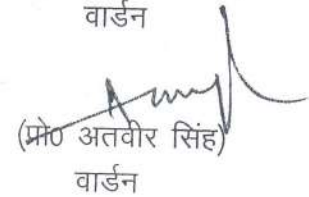 वार्डन
(प्रो० अतवीर सिंह)
वार्डन